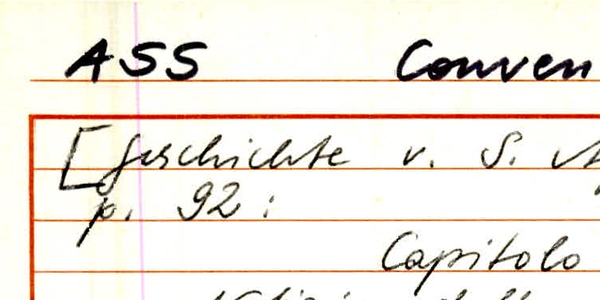 ASS Conven
[Geschichte v. S.
p. 92:
Capitolo